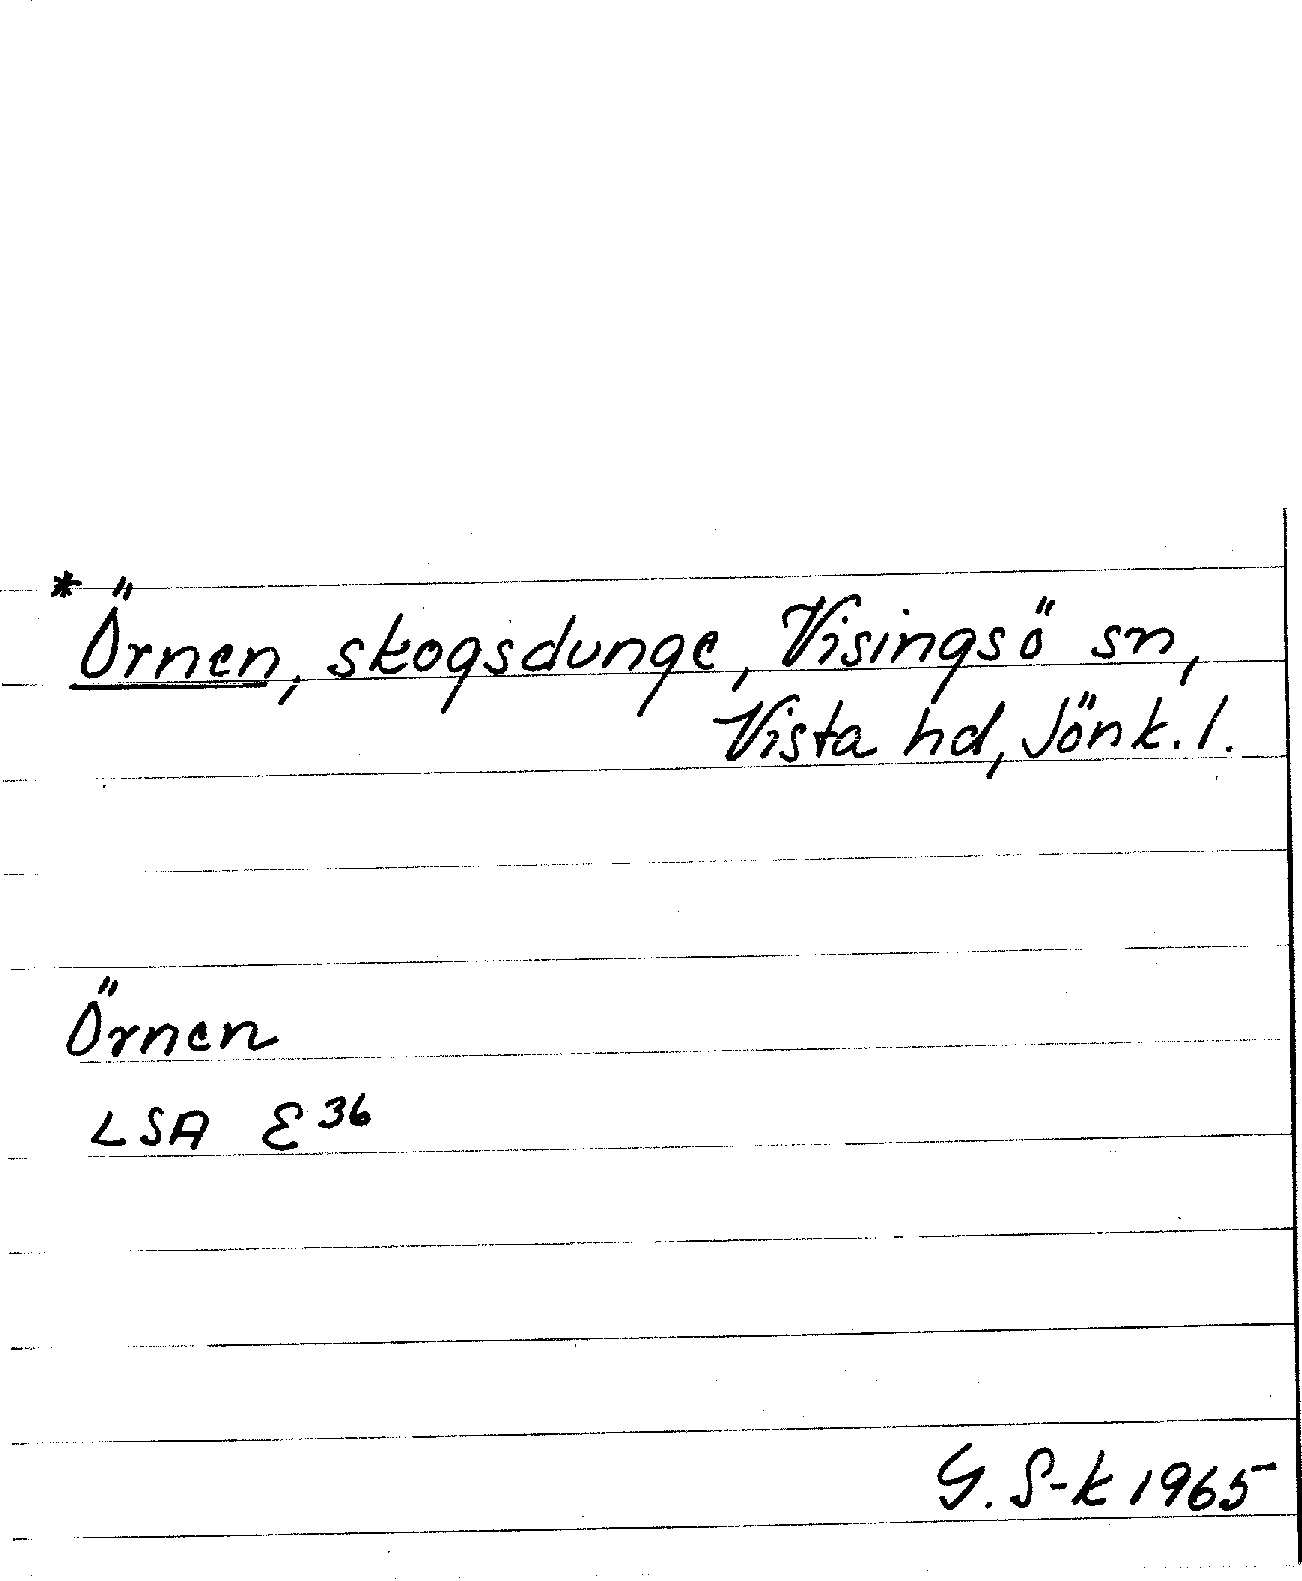 * Örnen, skogsdunge, Visingsö sn,
Vista hd, Jönk. l.
Örnen
LSA E 36
G. S-k 1965